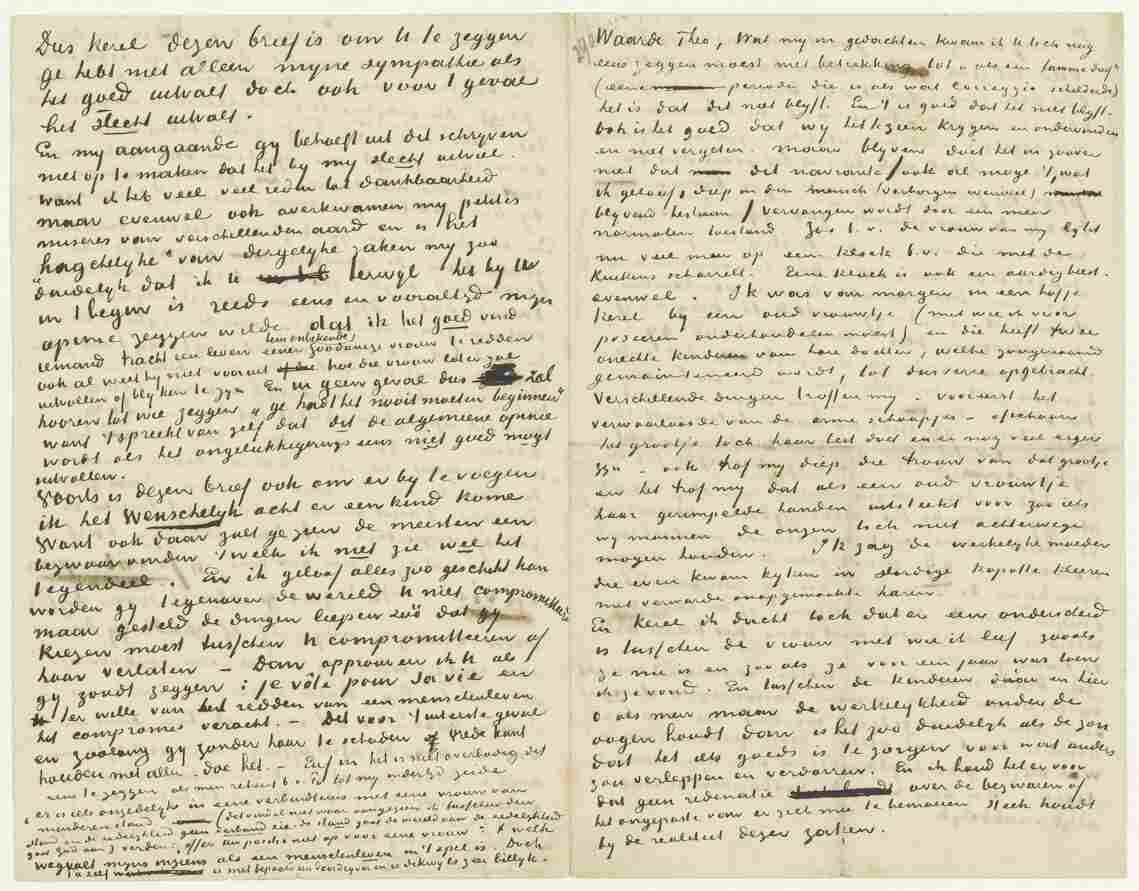 Dus kerel dezen brief is om U te zeggen
ge hebt niet alleen mijne sympathie als
het goed uitvalt doch ook voor 't geval
het slecht uitvalt.
En mij aangaande gij behoeft uit dit schrijven
niet op te maken dat het bij mij slecht uitviel.
want ik heb veel veel reden tot dankbaarheid
maar evenwel ook overkwamen mij petites
misères van verschillenden aard en is het
hagchelijke" van dergelijke zaken mij zoo
duidelijk dat ik U terwijl het bij U
in 't begin is reeds eens en vooraltijd mijn
opinie zeggen wilde dat ik het goed vind
iemand tracht een leven eener zoodanige vrouw te redden
hem onbekende
ook al weet hij niet vooruit hoe die vrouw later zal
uitvallen of blijken te zijn En in geen geval dus zal
hooren tot wie zeggen „ge hadt het nooit moeten beginnen"
want 't spreekt van zelf dat dit de algemeene opinie
wordt als het ongelukkigerwijs eens niet goed mogt
uitvallen.
Voorts is dezen brief ook om er bij te voegen
ik het Wenschelijk acht er een kind kome
Want ook daar zult ge zien de meesten een
bezwaar vinden 't welk ik niet zie wel het
tegendeel. En ik geloof alles zoo geschikt kan
worden gij tegenover de wereld U niet compromitteert
maar gesteld de dingen liepen zóó dat gij
kiezen moest tusschen U compromitteeren of
haar verlaten – Dan approuveer ik U als
gij zoudt zeggen: je vôte pour sa vie en
ter wille van redden van een menschenleven
het compromis veracht. – Dit voor 't uiterste geval
en zoolang gij zonder haar te schaden vrede kunt
houden met allen. doe het. – Enfin het is niet overbodig dit
eens te zeggen als men rekent b.v. Pa tot mij onderzijds zeide
„er is iets onzedelijks in eene verbindtenis met eene vrouw van
minderen stand" (dit vind ik niet waar aangezien ik tusschen den
stand en de zedelijkheid geen verband zie. de stand gaat de wereld aan de zedelijkheid
gaat God aan) verder: „offer uw positie niet op voor eene vrouw" 't welk
wegvalt mijns inziens als een menschenleven in 't spel is. Doch
is niet bepaald een voordeel en is dikwijls zoo billijk.
Waarde Theo, Wat mij in gedachten kwam ik U toch nog
eens zeggen moest met betrekking tot als een lammedag"
(eene periode die is als wat Correggio schilderde)
het is dat dit niet blijft. En 't is goed dat het niet blijft.
Ook is het goed dat wij het kezen krijgen en ondervinden
en niet vergeten. maar blijven doet het in zoover
niet dat dit navrante/ook al moge 't, wat
ik geloof, diep in den mensch (verborgen evenwel)
blijvend bestaan / vervangen wordt door een meer
normalen toestand Zoo b.v. de vrouw van mij lijkt
nu veel meer op een kloek b.v. die met de
kuikens scharrelt. Eene kloek is ook een aardig beest.
evenwel. Ik was van morgen in een hofje
kerel bij een oud vrouwtje (met wie ik voor
poseeren onderhandelen moest) en die heeft twee
onechte kinderen van hare dochter, welke zoogenaamd
gemainteneerd wordt, tot dusverre opgebracht.
Verschillende dingen troffen mij – vooreerst het
verwaarloosde van de arme schaapjes – ofschoon
het grootje toch haar best doet en er nog veel erger
zijn – ook trof mij diep die trouw van dat grootje
en het trof mij dat als een oud vrouwtje
haar gerimpelde handen uitsteekt voor zoo iets
wij mannen de onzen toch niet achterwege
mogen houden. Ik zag de werkelijke moeder
die even kwam kijken in slordige kapotte kleeren
met verwarde onopgemaakte haren.
En kerel ik dacht toch dat er een onderscheid
is tusschen de vrouw met wie ik leef zooals
ze nu is en zooals ze voor een jaar was toen
ik ze vond. En tusschen de kinderen daar en hier
o als men maar de werkelijkheid onder de
oogen houdt dan is het zoo duidelijk als de zon
dat het iets goeds is te zorgen voor wat anders
zou verleppen en verdorren. En ik houd het er voor
dat geen redenatie over de bezwaren of
het ongepaste van er zich mee te bemoeien steek houdt
bij de realiteit dezer zaken.